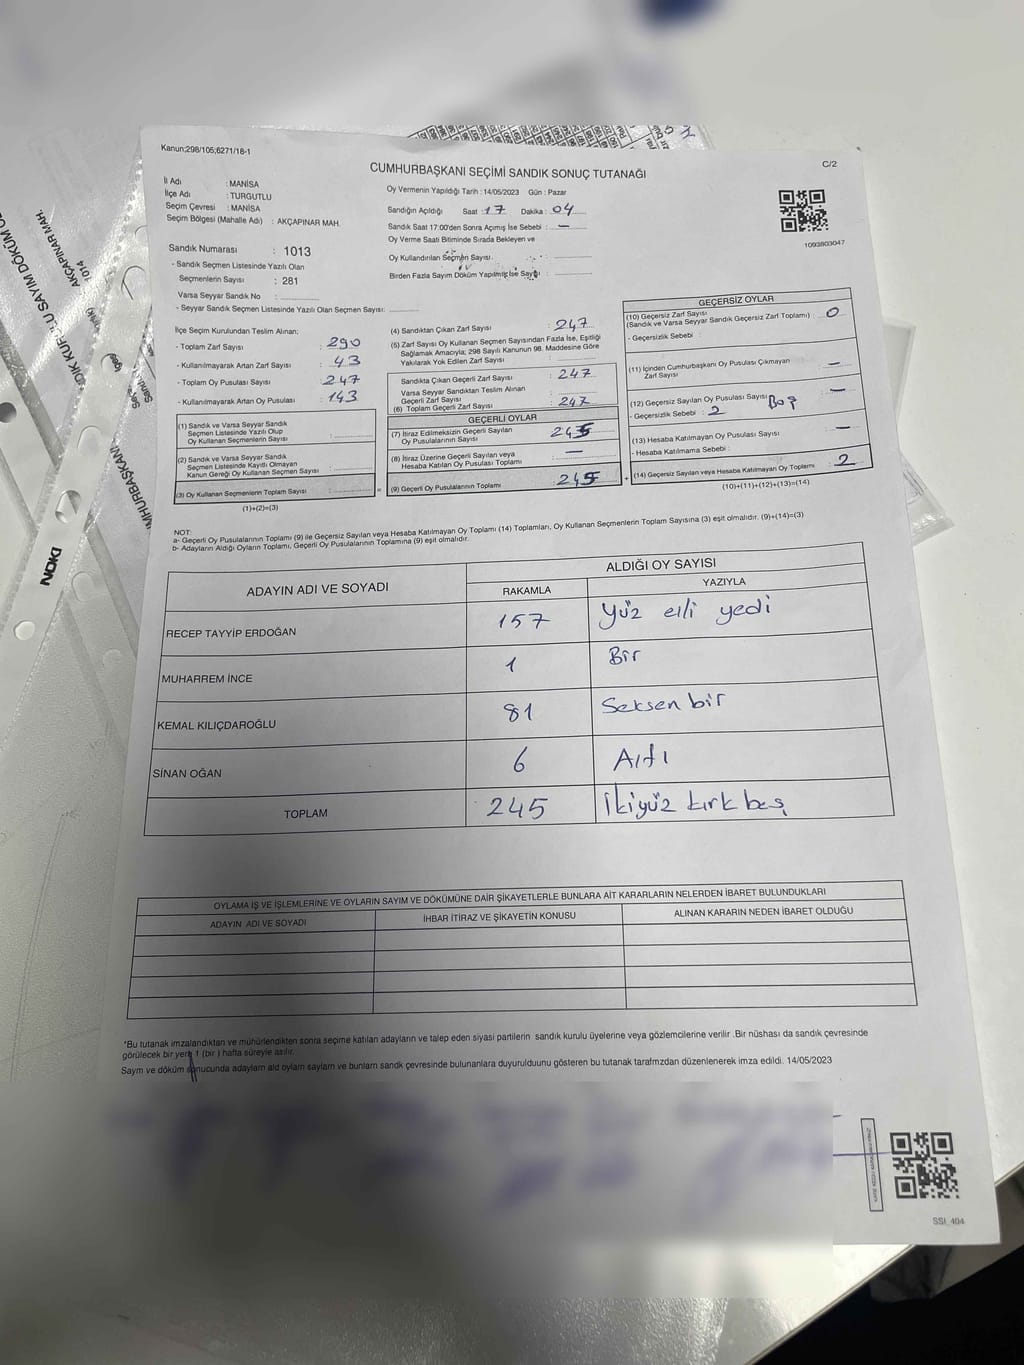 Kanun;298/105;6271/18-1
C/2
CUMHURBAŞKANI SEÇİMİ SANDIK SONUÇ TUTANAĞI
İl Adı : MANİSA
İlçe Adı : TURGUTLU
Seçim Çevresi : MANİSA
Seçim Bölgesi (Mahalle Adı) : AKÇAPINAR MAH.
Sandık Numarası : 1013
- Sandık Seçmen Listesinde Yazılı Olan
Seçmenlerin Sayısı : 281
Varsa Seyyar Sandık No :
- Seyyar Sandık Seçmen Listesinde Yazılı Olan Seçmen Sayısı:
Oy Vermenin Yapıldığı Tarih : 14/05/2023 Gün : Pazar
Sandığın Açıldığı Saat : 17 Dakika : 04
Sandık Saat 17:00'den Sonra Açımış İse Sebebi : —
Oy Verme Saati Bitiminde Sırada Bekleyen ve
Oy Kullandırılan Seçmen Sayısı.
Birden Fazla Sayım Döküm Yapılmış İse Sayısı :
1093803047
İlçe Seçim Kurulundan Teslim Alınan;
- Toplam Zarf Sayısı : 290
- Kullanılmayarak Artan Zarf Sayısı : 43
- Toplam Oy Pusulası Sayısı : 247
- Kullanılmayarak Artan Oy Pusulası : 143
(1) Sandık ve Varsa Seyyar Sandık
Seçmen Listesinde Yazılı Olup
Oy Kullanan Seçmenlerin Sayısı :
(2) Sandık ve Varsa Seyyar Sandık
Seçmen Listesinde Kayıtlı Olmayan
Kanun Gereği Oy Kullanan Seçmen Sayısı :
(3) Oy Kullanan Seçmenlerin Toplam Sayısı :
(1)+(2)=(3)
(4) Sandıktan Çıkan Zarf Sayısı : 247
(5) Zarf Sayısı Oy Kullanan Seçmen Sayısından Fazla İse, Eşitliği
Sağlamak Amacıyla; 298 Sayılı Kanunun 98. Maddesine Göre
Yakılarak Yok Edilen Zarf Sayısı :
Sandıkta Çıkan Geçerli Zarf Sayısı : 247
Varsa Seyyar Sandıktan Teslim Alınan
Geçerli Zarf Sayısı :
(6) Toplam Geçerli Zarf Sayısı : 247
GEÇERLİ OYLAR
(7) İtiraz Edilmeksizin Geçerli Sayılan
Oy Pusulalarının Sayısı : 245
(8) İtiraz Üzerine Geçerli Sayılan veya
Hesaba Katılan Oy Pusulası Toplamı : —
(9) Geçerli Oy Pusulalarının Toplamı : 245
GEÇERSİZ OYLAR
(10) Geçersiz Zarf Sayısı
(Sandık ve Varsa Seyyar Sandık Geçersiz Zarf Toplamı) : 0
- Geçersizlik Sebebi :
(11) İçinden Cumhurbaşkanı Oy Pusulası Çıkmayan
Zarf Sayısı : —
(12) Geçersiz Sayılan Oy Pusulası Sayısı : —
- Geçersizlik Sebebi : 2 Boş
(13) Hesaba Katılmayan Oy Pusulası Sayısı : —
- Hesaba Katılmama Sebebi :
(14) Geçersiz Sayılan veya Hesaba Katılmayan Oy Toplamı : 2
(10)+(11)+(12)+(13)=(14)
NOT:
a- Geçerli Oy Pusulalarının Toplamı (9) ile Geçersiz Sayılan veya Hesaba Katılmayan Oy Toplamı (14) Toplamları, Oy Kullanan Seçmenlerin Toplam Sayısına (3) eşit olmalıdır. (9)+(14)=(3)
b- Adayların Aldığı Oyların Toplamı, Geçerli Oy Pusulalarının Toplamına (9) eşit olmalıdır.
ADAYIN ADI VE SOYADI ALDIĞI OY SAYISI
RAKAMLA YAZIYLA
RECEP TAYYİP ERDOĞAN 157 Yüz elli yedi
MUHARREM İNCE 1 Bir
KEMAL KILIÇDAROĞLU 81 Seksen bir
SİNAN OĞAN 6 Altı
TOPLAM 245 İkiyüz kırk beş
OYLAMA İŞ VE İŞLEMLERİNE VE OYLARIN SAYIM VE DÖKÜMÜNE DAİR ŞİKAYETLERLE BUNLARA AİT KARARLARIN NELERDEN İBARET BULUNDUKLARI
ADAYIN ADI VE SOYADI İHBAR İTİRAZ VE ŞİKAYETİN KONUSU ALINAN KARARIN NEDEN İBARET OLDUĞU
*Bu tutanak imzalandıktan ve mühürlendikten sonra seçime katılan adayların ve talep eden siyasi partilerin sandık kurulu üyelerine veya gözlemcilerine verilir .Bir nüshası da sandık çevresinde
görülecek bir yere 1 (bir ) hafta süreyle asılır.
Sayım ve döküm sonucunda adayların ald oyların sayları ve bunların sandk çevresinde bulunanlara duyurulduunu gösteren bu tutanak tarafmzdan düzenlenerek imza edildi. 14/05/2023
SSI_404
AKÇAPINAR MAH.
1014
DION